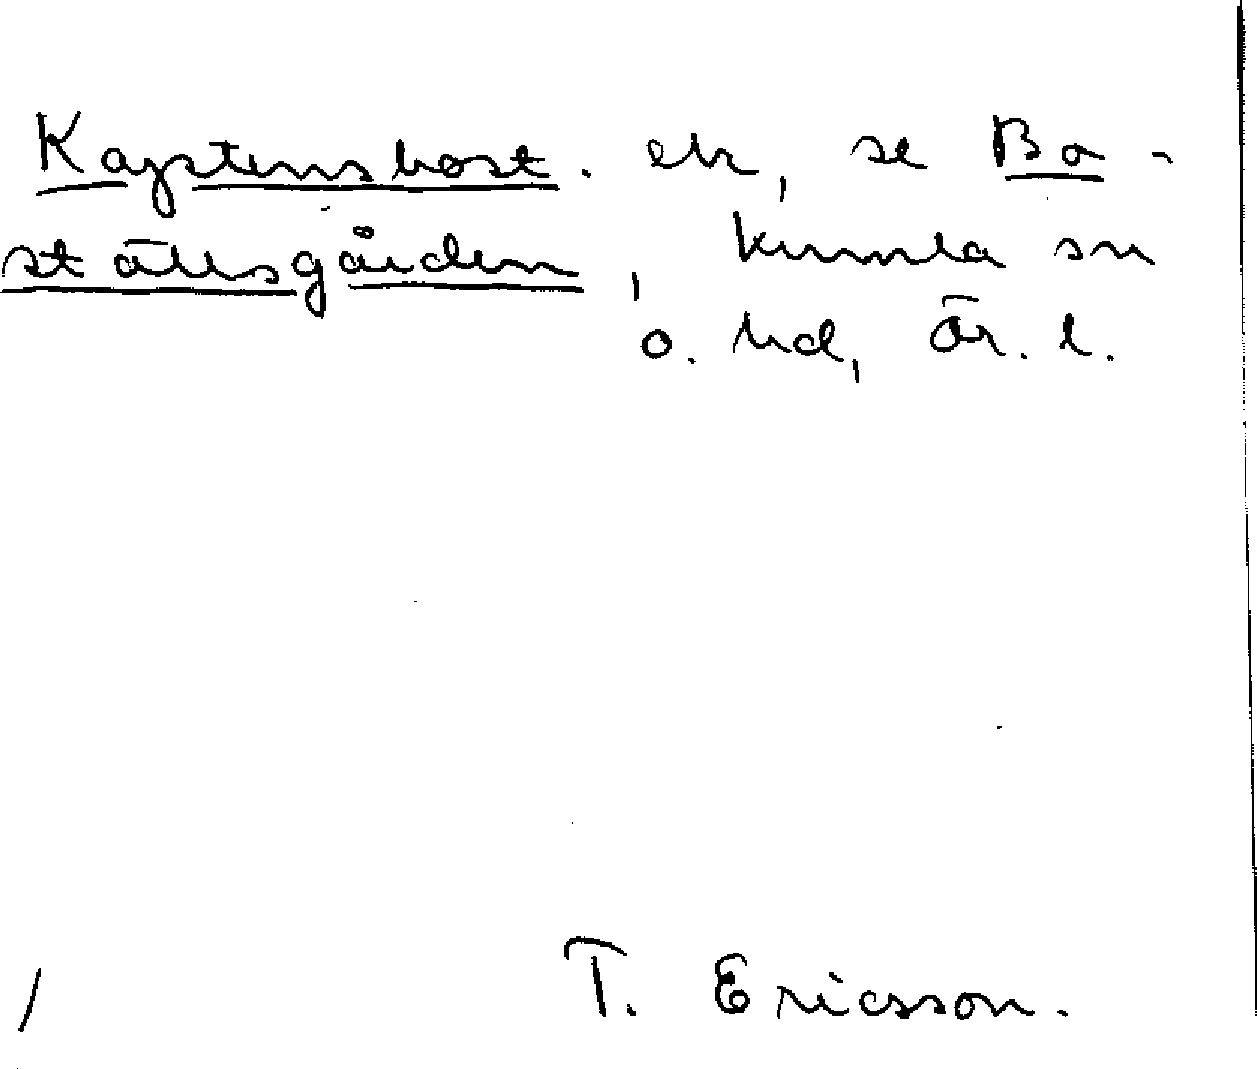 Kaptensbost. ek, se Bo-
ställsgården, Kumla sn
o. hd, Ör. l.
T. Ericsson.